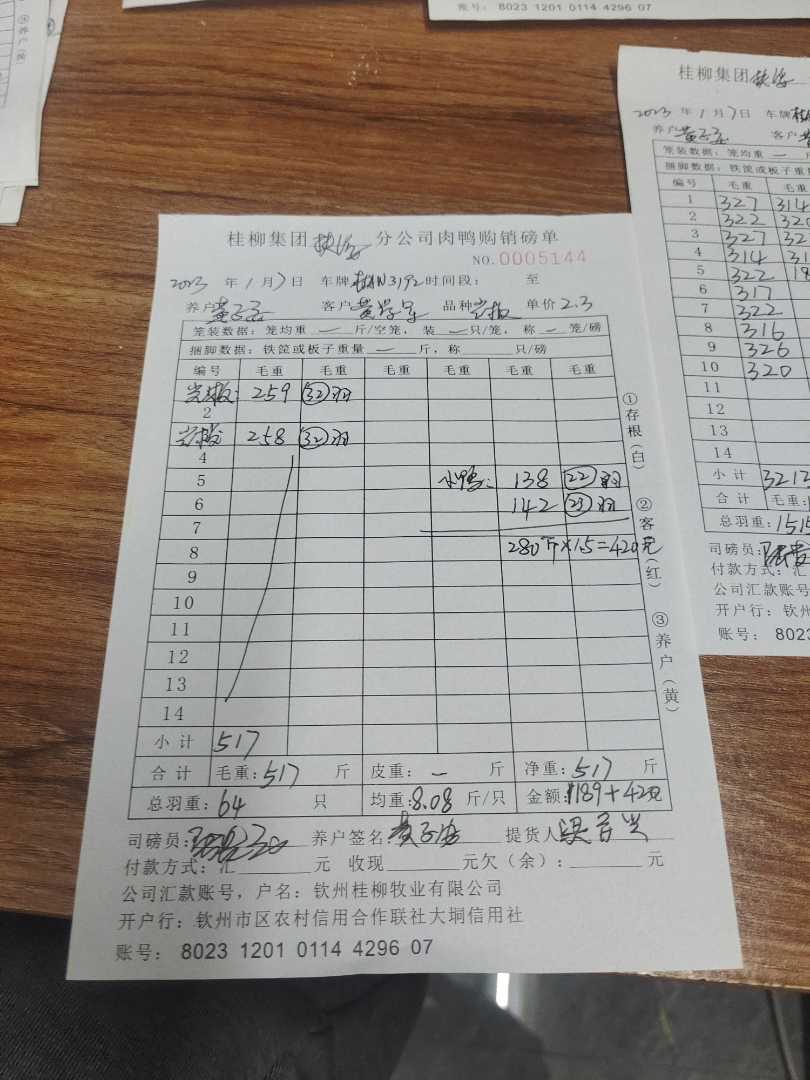 账号: 8023 1201 0114 4296 07
桂柳集团 分公司肉鸭购销磅单
NO.0005144
2023 年 1 月 7 日 车牌 桂N3192 时间段: 至
养户 客户 品种 单价 2.3
笼装数据: 笼均重 一 斤/空笼, 装 一 只/笼, 称 一 笼/磅
捆脚数据: 铁筐或板子重量 一 斤, 称 只/磅
编号 毛重 毛重 毛重 毛重 毛重 毛重
259 32羽
2
258 32羽
4
5 小鸭: 138 22羽
6 142 23羽
7
8 280斤×1.5=420元
9
10
11
12
13
14
小计 517
合计 毛重: 517 斤 皮重: 一 斤 净重: 517 斤
总羽重: 64 只 均重: 8.08 斤/只 金额: 1189+420
司磅员: 养户签名 提货人
付款方式: 汇 元 收现 元欠(余): 元
公司汇款账号, 户名: 钦州桂柳牧业有限公司
开户行: 钦州市区农村信用合作联社大垌信用社
账号: 8023 1201 0114 4296 07
①存根(白)
②客 (红)
③养户(黄)
桂柳集团
2023 年 1 月 7 日 车牌
养户 客户
笼装数据: 笼均重 一
捆脚数据: 铁筐或板子重量
编号 毛重 毛重
1 327 314
2 322 320
3 327 32
4 314 31
5 322 19
6 317
7 322
8 316
9 326
10 320
11
12
13
14
小计 3213
合计 毛重:
总羽重: 1515
司磅员:
付款方式: 汇
公司汇款账号
开户行: 钦州
账号: 8023